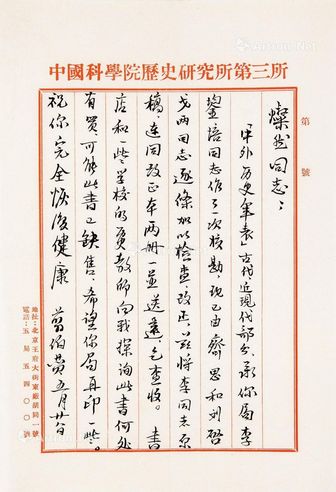 中國科學院歷史研究所第三所
第 號
燦然同志：
「中外历史年表」古代、近現代部分，承你局李
鋆培同志作了一次校勘，現已由齊思和刘启
戈两同志逐條加以檢查、改正，兹將李同志原
稿，連同改正本两册，一並送還，乞查收。書
店和一些学校的歷史教師向我探詢此書何处
有買，可能此書已缺售，希望你局再印一些。
祝你完全恢復健康 翦伯赞 五月廿日
地址：北京王府大街東廠胡同一號
電話：五局五四〇〇號